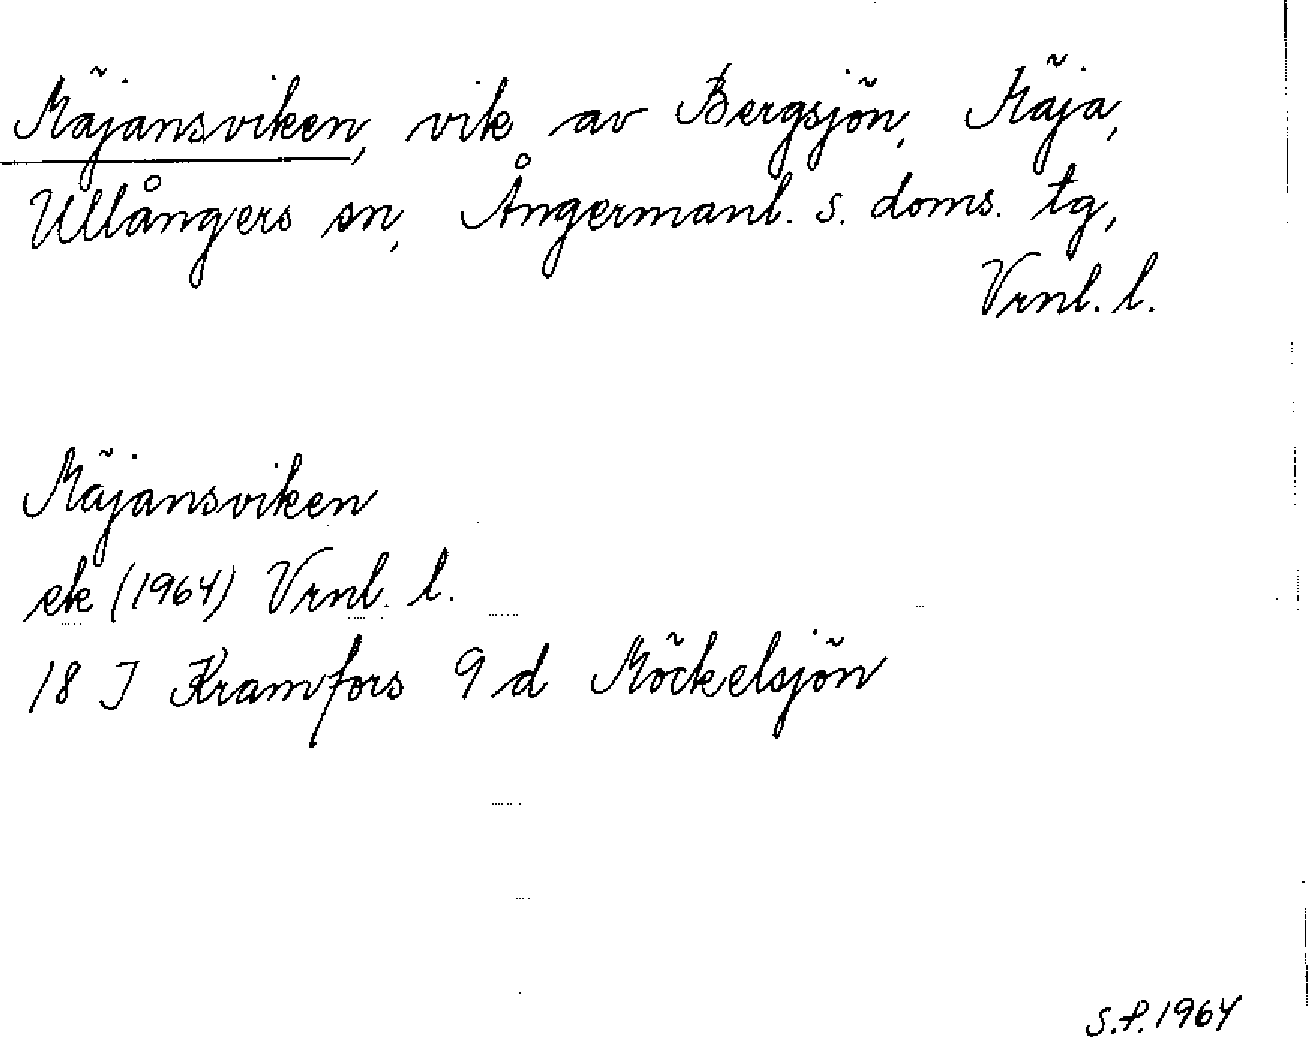 Mäjansviken, vik av Bergsjön, Mäja,
Ullångers sn, Ångermanl. s. doms. tg,
Vrnl. l.
Mäjansviken
ek (1964) Vrnl. l.
18 J Kramfors 9 d Möckelsjön
S.P. 1964